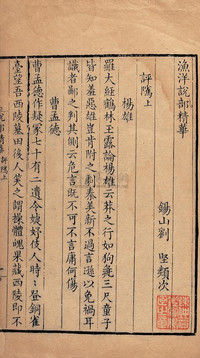 漁洋說部精華
錫山劉 堅類次
評隲上
楊雄
羅大經鶴林玉露論楊雄云莽之行如狗彘三尺童子
皆知羞惡雄豈肯附之劇秦美新不過言遜以免禍耳
識者鄙之判其側云危言既不可不言庸何傷
曹孟德
曹孟德作疑冢七十有二遺令婕妤伎人時時登銅雀
臺望吾西陵墓田後人哀之謂操體魄果藏西陵即不